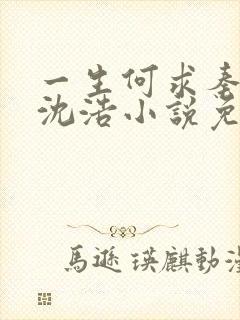 一生何求秦
沈浩小說免
馬遜瑛麒動漫